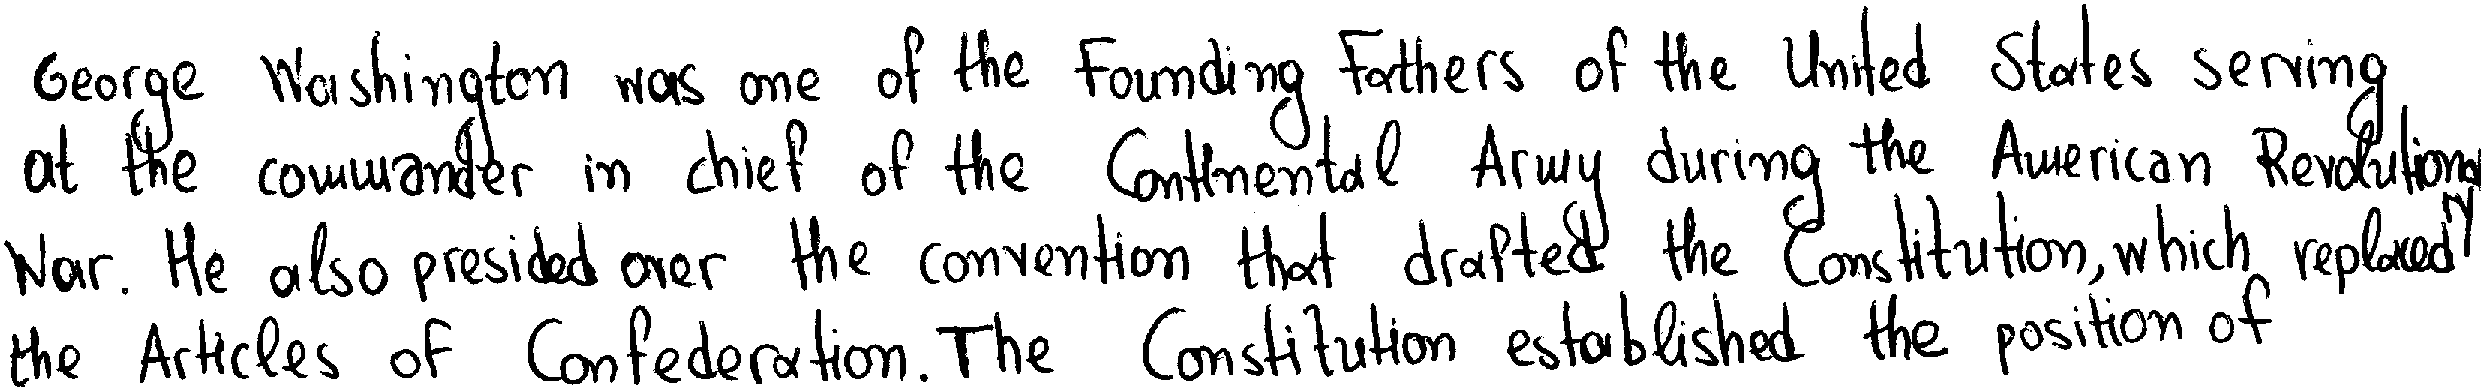 George Washington was one of the Founding Fathers of the United States serving
at the commander in chief of the Continental Army during the American Revolutionary
War. He also presided over the convention that drafted the Constitution, which replaced
the Articles of Confederation. The Constitution established the position of